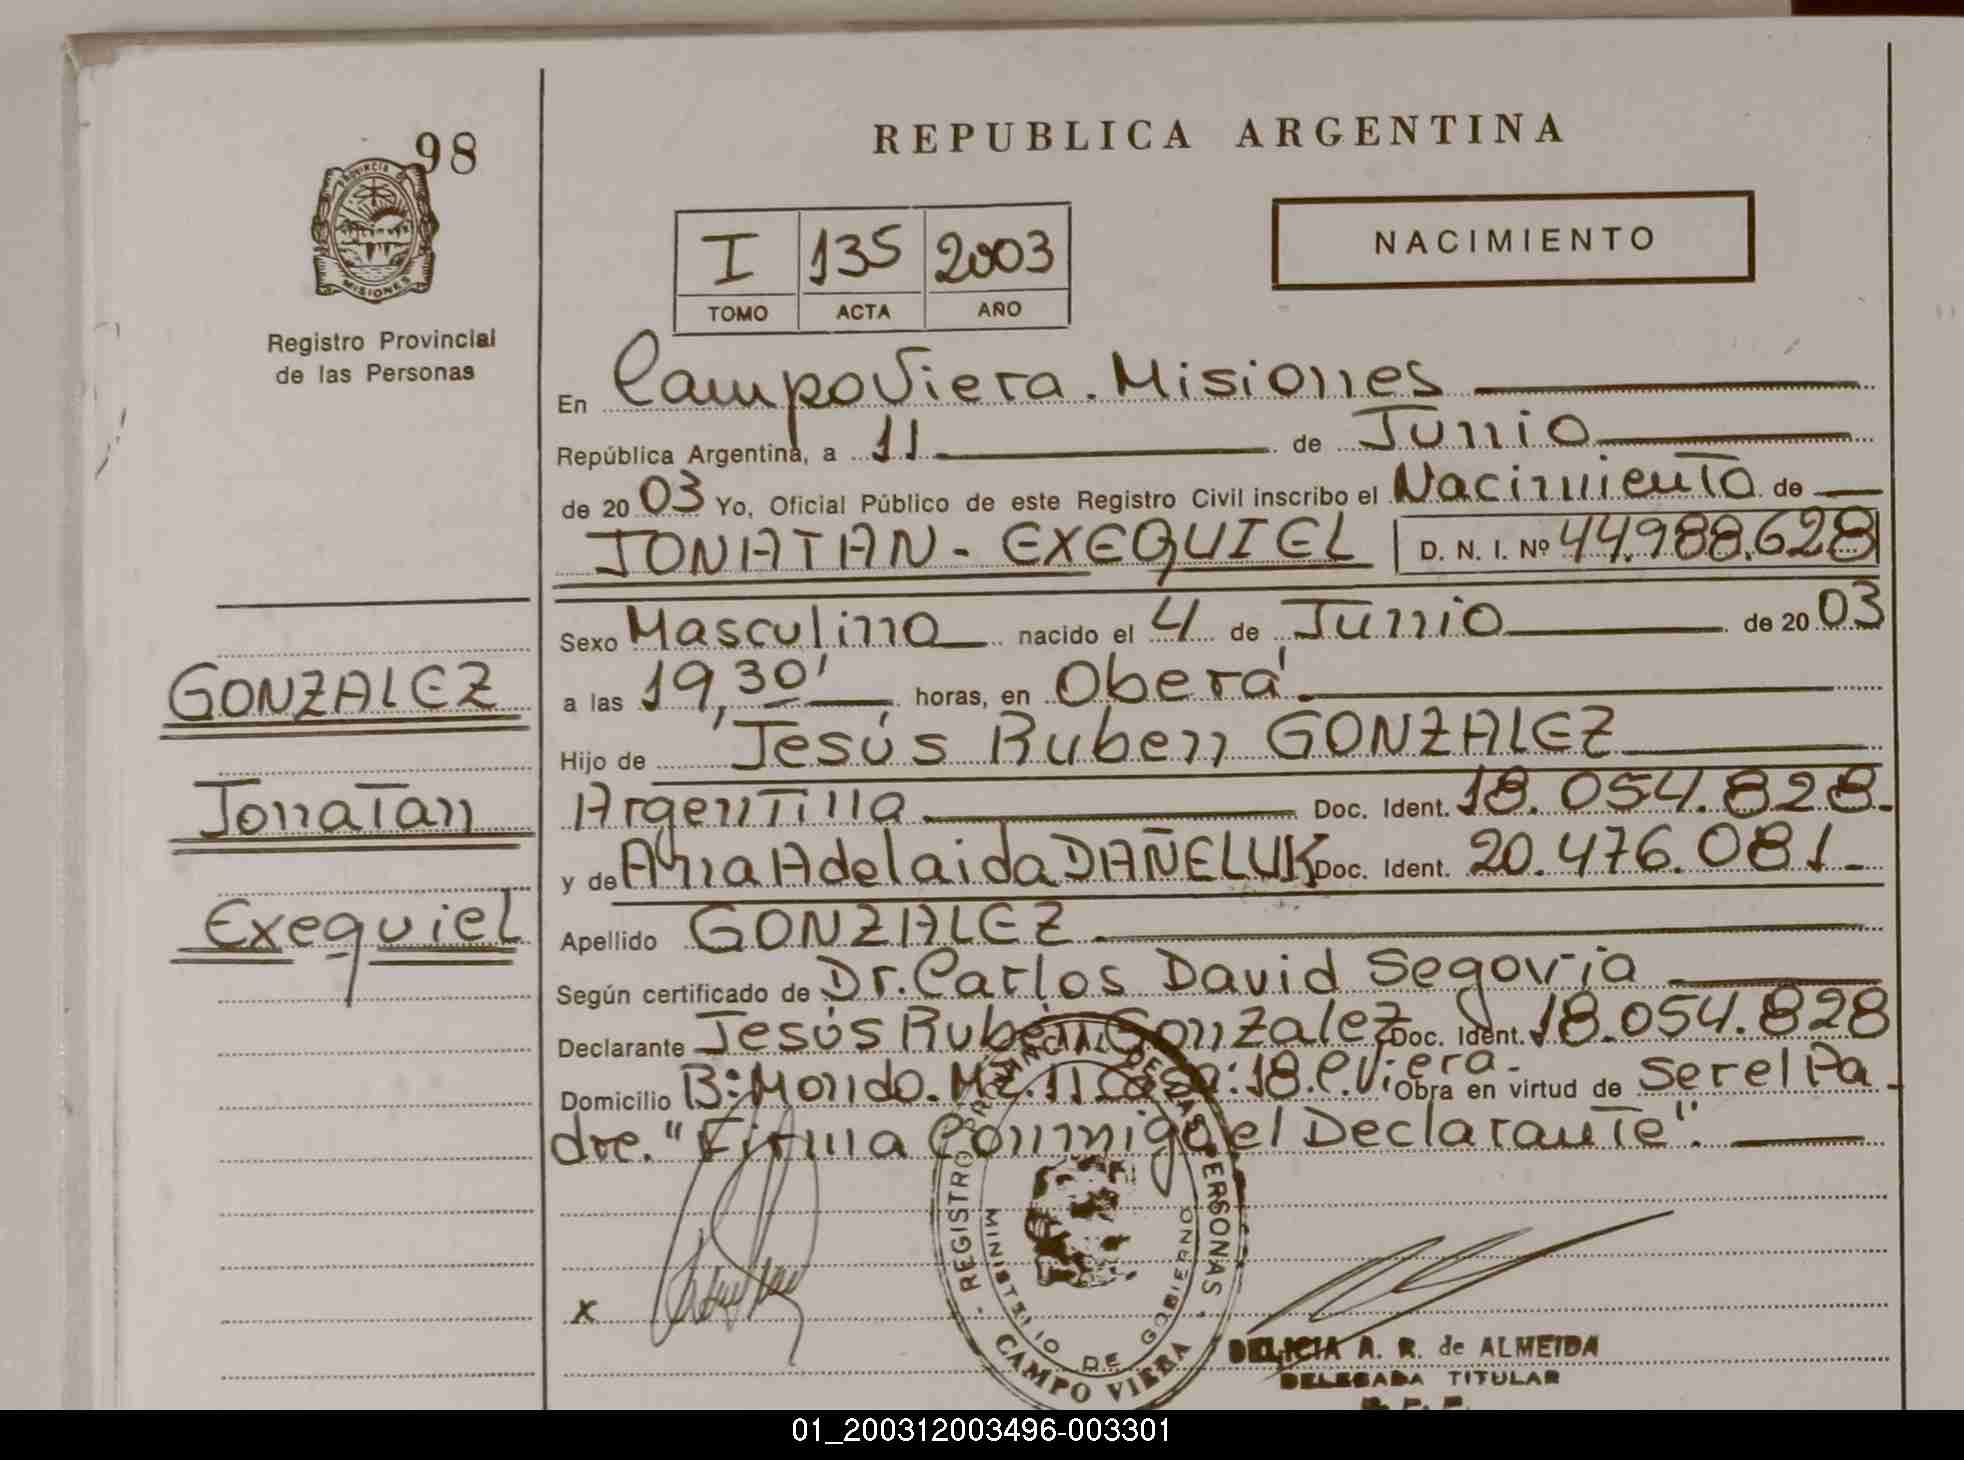 98
PROVINCIA DE
MISIONES
Registro Provincial
de las Personas
GONZALEZ
Jonatan
Exequiel
REPUBLICA ARGENTINA
NACIMIENTO
I 135 2003
TOMO ACTA AÑO
En Campo Viera. Misiones
República Argentina, a 11 de Junio
de 20 03 Yo, Oficial Público de este Registro Civil inscribo el Nacimiento de
JONATAN - EXEQUIEL D. N. I. Nº 44.988.628
Sexo Masculino nacido el 4 de Junio de 20 03
a las 19,30' horas, en Oberá.
Hijo de Jesús Ruben GONZALEZ
Argentina Doc. Ident. 18.054.828.
y de Ana Adelaida DAÑELUK Doc. Ident. 20.476.081.
Apellido GONZALEZ
Según certificado de Dr. Carlos David Segovia
Declarante Jesús Rubén Gonzalez Doc. Ident. 18.054.828
Domicilio B: Mondo. Mz. 11 Casa: 18. C. Viera. Obra en virtud de ser el Pa
dre. "Firma Conmigo el Declarante".
x
REGISTRO PROVINCIAL DE LAS PERSONAS
MINISTERIO DE GOBIERNO
CAMPO VIERA
DELICIA A. R. de ALMEIDA
DELEGADA TITULAR
01_200312003496-003301